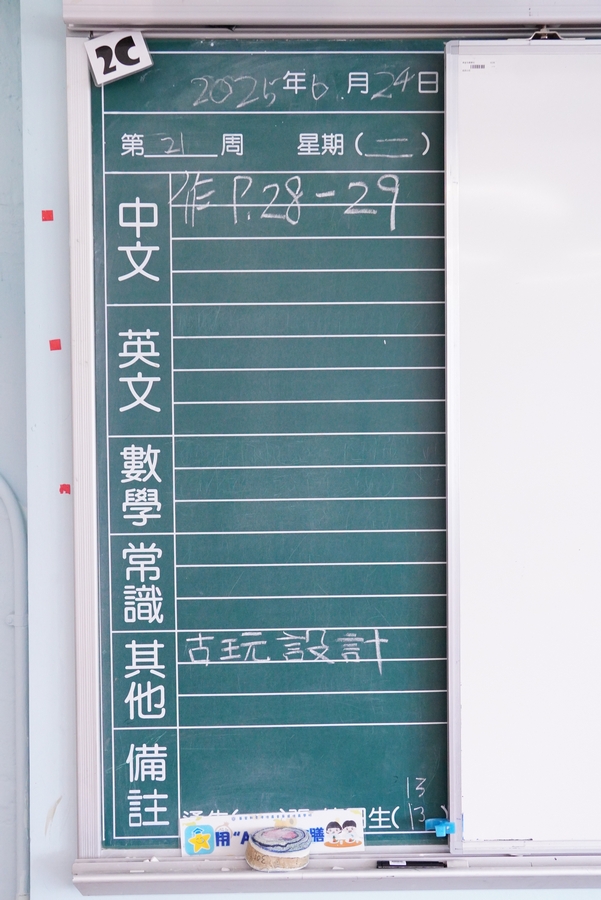 2C
2025年6月24日
第21周 星期(二)
中文
作 P.28-29
英文
數學
常識
其他
古玩設計
備註
13
生(13)
用"A
膳